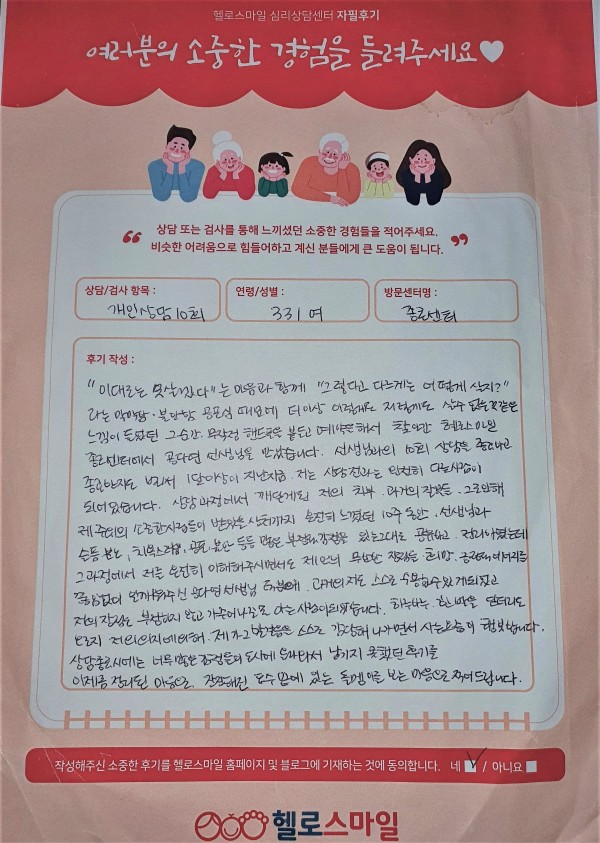 헬로스마일 심리상담센터 자필후기
여러분의 소중한 경험을 들려주세요♥
상담 또는 검사를 통해 느끼셨던 소중한 경험들을 적어주세요.
비슷한 어려움으로 힘들어하고 계신 분들에게 큰 도움이 됩니다.
상담/검사 항목 :
개인상담 10회
연령/성별 :
33 / 여
방문센터명 :
종로센터
후기 작성 :
"이대로는 못살겠다"는 마음과 함께 "그렇다고 다르게는 어떻게 살지?"
라는 막막함·불안함 공포심 때문에 더이상 이렇게도 저렇게도 살수 없는것같은
느낌이 들었던 그순간. 무작정 핸드폰을 붙들고 예약을해서 찾아간 헬로스마일
종로센터에서 공다연 선생님을 만났습니다. 선생님과의 10회 상담을 종료하고
종료한지도 벌써 1달이상이 지난지금. 저는 상담전과는 완전히 다른사람이
되어있습니다. 상담과정에서 깨닫게된 저의 치부. 과거의 잘못들. 그로인해
제 주변의 소중한사람들이 받았을 상처까지 온전히 느꼈던 10주 동안. 선생님과
슬픔 분노, 치욕스러움, 공포 불안 등등 많은 부정적감정을 있는그대로 공유하고. 정리하였는데
그과정에서 저를 온전히 이해해주시면서도 제안의 무한한 장점들·희망. 긍정적에너지를
끊임없이 안겨주신 공다연 선생님 덕분에. 과거의 저도 스스로 수용할수있게되었고
저의 잘못도 부정하지 않고 가족에 나눌줄 아는 사람이되었습니다. 하루하루. 한 마음 한마디도
오로지 저의의지에의해. 제가 그 발걸음을 스스로 감당해 나가면서 사는오늘이 행복합니다.
상담종료시에는 너무 많은 감정들이 동시에 올라와서 남기지 못했던 후기를
이제금 정리된 마음으로. 잔잔해진 호수 안에 있는 돌멩이를 보는 마음으로 적어드립니다.
작성해주신 소중한 후기를 헬로스마일 홈페이지 및 블로그에 기재하는 것에 동의합니다. 네 ✓ / 아니요
헬로스마일